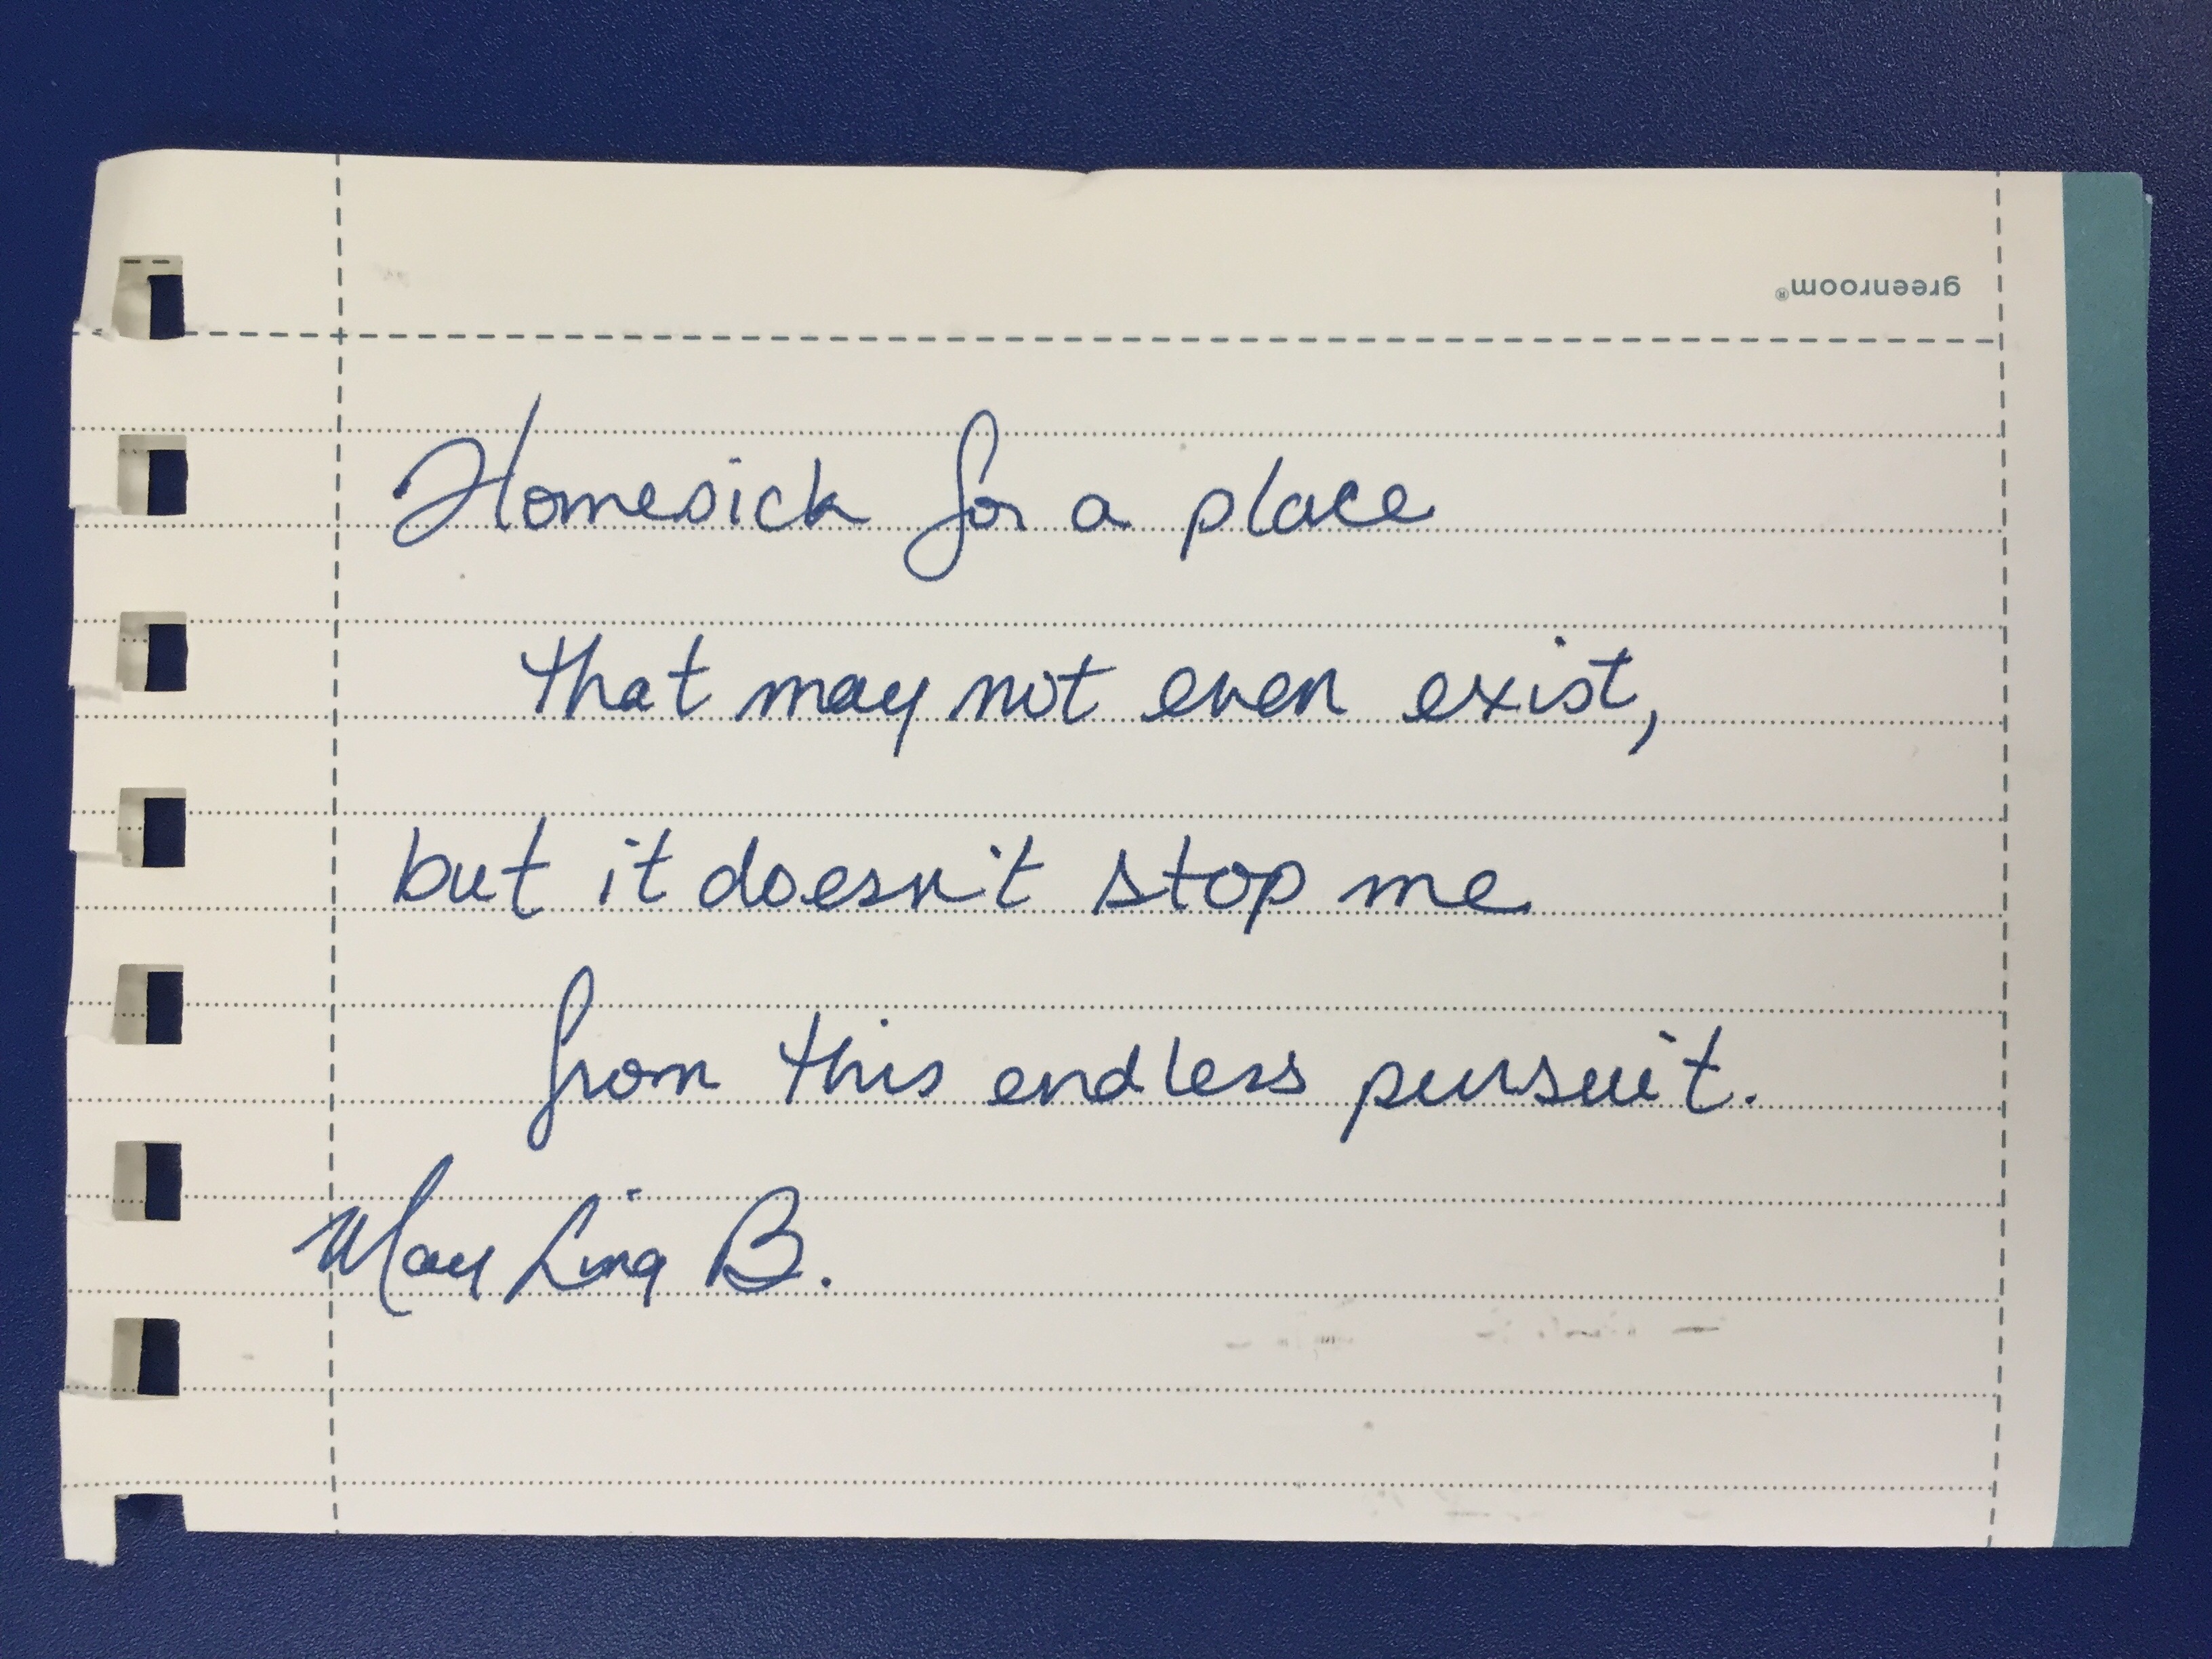 greenroom®
Homesick for a place
that may not even exist,
but it doesn't stop me
from this endless pursuit.
May Ling B.